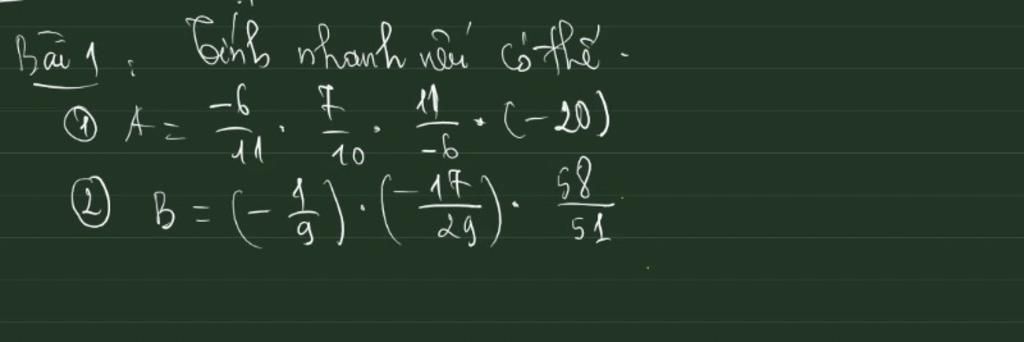 Bài 1 : Tính nhanh nếu có thể.
① A = \frac{-6}{11} . \frac{7}{10} . \frac{11}{-6} . (-20)
② B = (-\frac{1}{9}) . (-\frac{17}{29}) . \frac{58}{51}